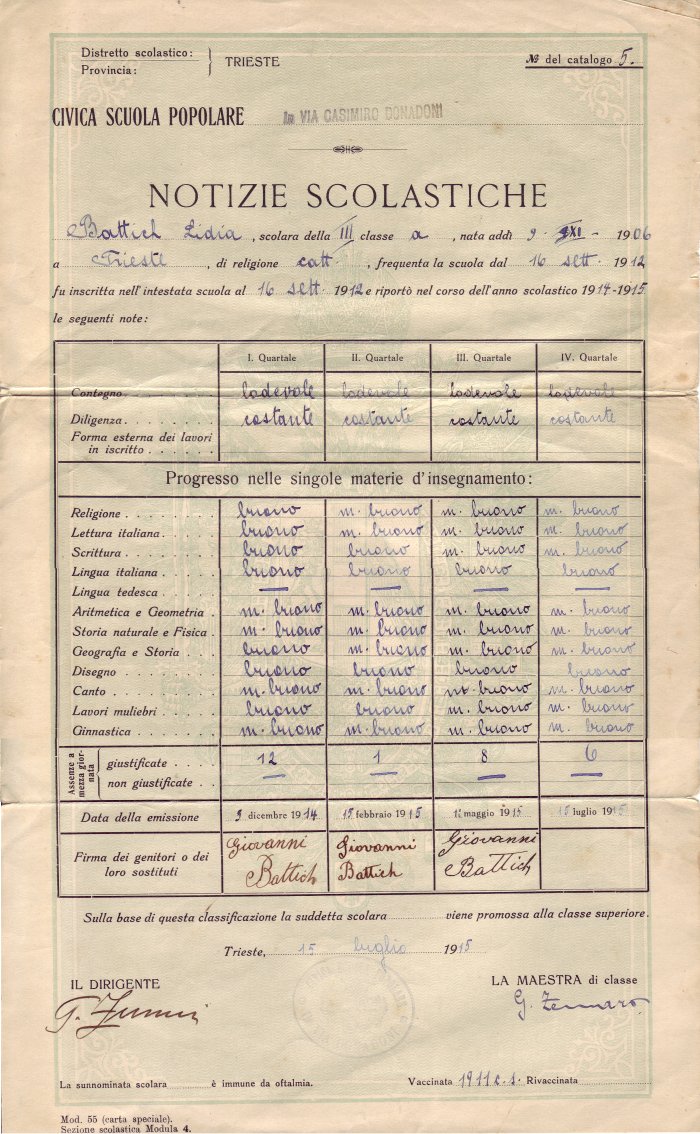 Distretto scolastico:
Provincia:
TRIESTE
№ del catalogo 5.
CIVICA SCUOLA POPOLARE In VIA CASIMIRO DONADONI
NOTIZIE SCOLASTICHE
Battich Lidia, scolara della III classe a, nata addì 9 XI 1906
a Trieste, di religione catt., frequenta la scuola dal 16 sett. 1912
fu inscritta nell'intestata scuola al 16 sett. 1912 e riportò nel corso dell'anno scolastico 1914-1915
le seguenti note:
I. Quartale II. Quartale III. Quartale IV. Quartale
Contegno lodevole lodevole lodevole lodevole
Diligenza costante costante costante costante
Forma esterna dei lavori
in iscritto
Progresso nelle singole materie d'insegnamento:
Religione buono m. buono m. buono m. buono
Lettura italiana buono m. buono m. buono m. buono
Scrittura buono buono m. buono m. buono
Lingua italiana buono buono buono buono
Lingua tedesca — — — —
Aritmetica e Geometria m. buono m. buono m. buono m. buono
Storia naturale e Fisica m. buono m. buono m. buono m. buono
Geografia e Storia buono m. buono m. buono m. buono
Disegno buono buono buono buono
Canto m. buono m. buono m. buono m. buono
Lavori muliebri buono buono m. buono m. buono
Ginnastica m. buono m. buono m. buono m. buono
Assenze a mezza giornata
giustificate 12 1 8 6
non giustificate — — — —
Data della emissione 9 dicembre 1914 15 febbraio 1915 maggio 1915 15 luglio 1915
Firma dei genitori o dei
loro sostituti
Giovanni Battich
Giovanni Battich
Giovanni Battich
Sulla base di questa classificazione la suddetta scolara viene promossa alla classe superiore.
Trieste, 15 luglio 1915
IL DIRIGENTE
LA MAESTRA di classe
G. Zennaro
La sunnominata scolara è immune da oftalmia.
Vaccinata 1911 c. s. Rivaccinata
Mod. 55 (carta speciale).
Sezione scolastica Modula 4.